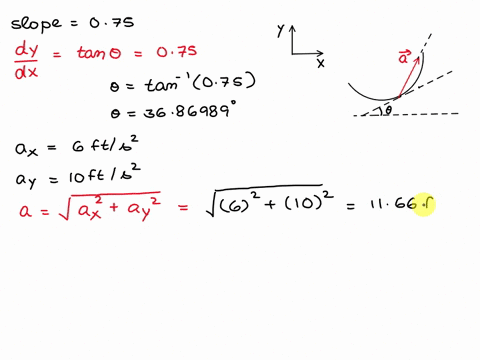 slope = 0.75
dy/dx = tanθ = 0.75
θ = tan⁻¹(0.75)
θ = 36.86989°
aₓ = 6 ft/s²
aᵧ = 10 ft/s²
a = √(aₓ² + aᵧ²) = √((6)² + (10)²) = 11.66 f
Y
x
a⃗
θ